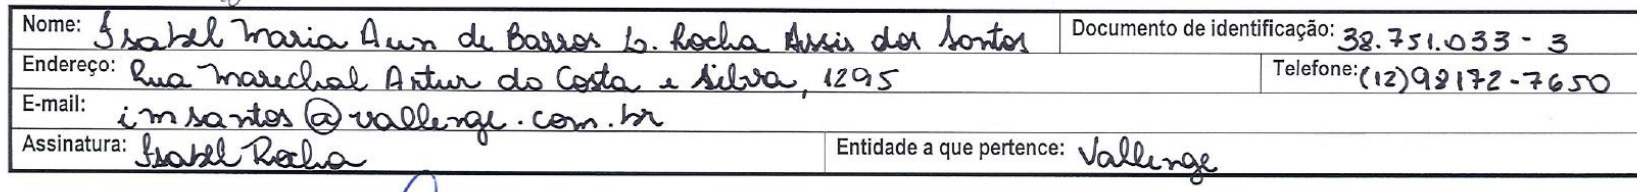 Nome: Isabel Maria Aun de Barros L. Rocha Assis dos Santos Documento de identificação: 38.751.033-3
Endereço: Rua Marechal Artur da Costa e Silva, 1295 Telefone: (12)98172-7650
E-mail: imsantos@vallenge.com.br
Assinatura: Isabel Rocha Entidade a que pertence: Vallenge